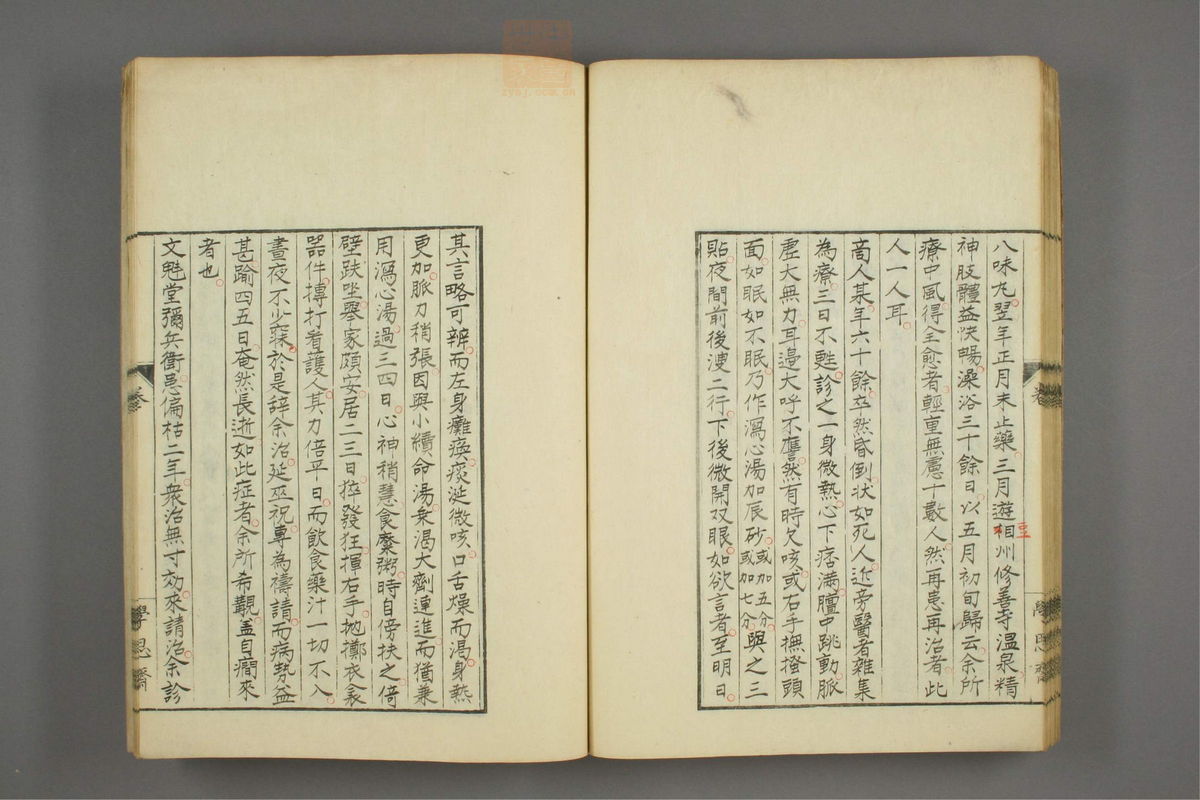 八味丸翌年正月末止藥三月遊相州修善寺溫泉精
豆
神肢體益快暢澡浴三十餘日以五月初旬歸云余所
療中風得全愈者輕重無慮十數人然再患再治者此
人一人耳
商人某年六十餘卒然昏倒狀如死人近旁醫者雜集
為療三日不甦診之一身微熱心下痞滿膻中跳動脈
虛大無力耳邊大呼不譍然有時欠咳或右手撫搔頭
面如眠如不眠乃作瀉心湯加辰砂或加五分或加七分與之三
貼夜間前後溲二行下後微開双眼如欲言者至明日
其言略可辨而左身癱瘓痰涎微咳口舌燥而渴身熱
更加脈力稍張因與小續命湯乘渴大劑連進而猶兼
用瀉心湯過三四日心神稍慧食糜粥時自傍扶之倚
壁趺坐擧家頗安居二三日猝發狂揮右手抛擲衣衾
器件摶打看護人其力倍平日而飲食藥汁一切不入
晝夜不少寐於是辞余治延巫祝專為禱請而病勢益
甚踰四五日奄然長逝如此症者余所希覯盖自癇來
者也
文魁堂彌兵衛患偏枯二年衆治無寸効來請治余診
卷
學思齋